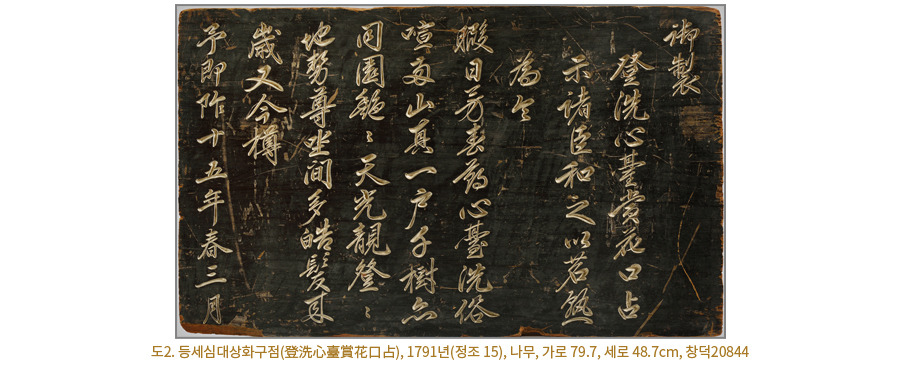 御製
登洗心臺賞花口占
示諸臣和之以茗熟
為令
暇日芳春 心臺洗俗
喧兩山真一戶千樹亦
同園 天光靚登〻
地勢尊坐間多皓髮來
歲又今樽
予卽阼十五年春三月
도2. 등세심대상화구점(登洗心臺賞花口占), 1791년(정조 15), 나무, 가로 79.7, 세로 48.7cm, 창덕20844